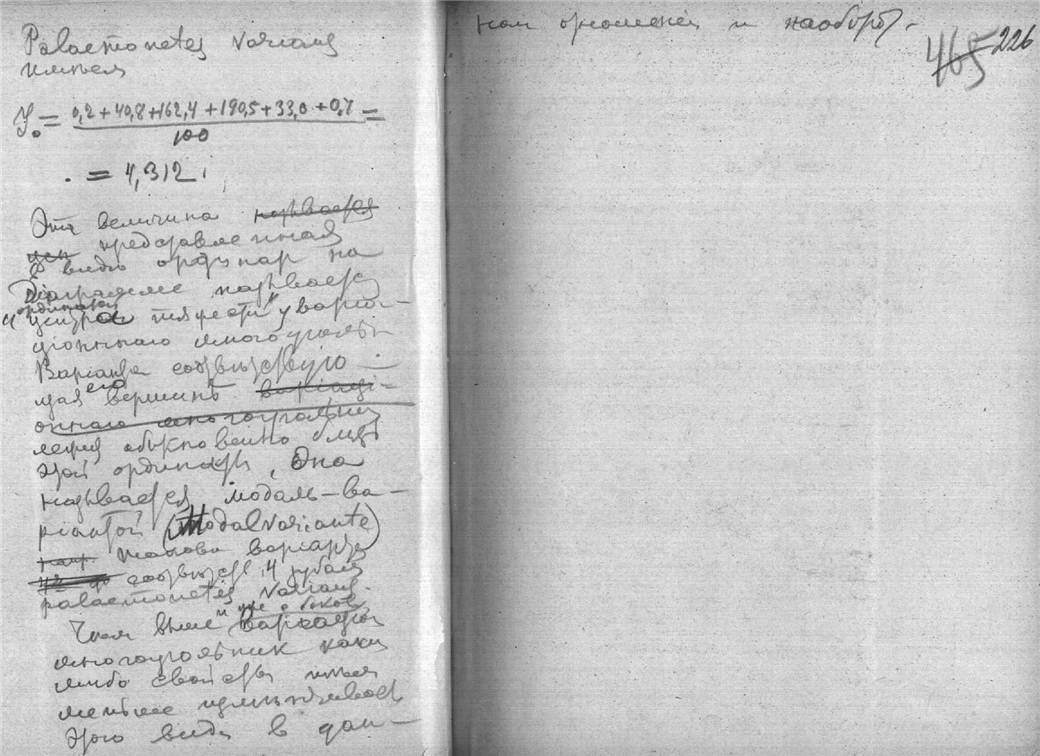 Palaemonetes varians
имѣем
У₀ = 0,2 + 40,8 + 162,4 + 190,5 + 33,0 + 0,7 =
100
= 4,312
Эта величина называется
представленная
в видѣ ординат на
Диаграмме называется
ордината
центра тяжести" вариа-
ционнаго многоугольн
Варианта соотвѣтствую-
щая его вершинѣ вариаци-
оннаго многоугольни
лежит обыкновенно близ
этой ординаты, Она
называется модаль-ва-
риантой (Modalvariante)
Такова варианта
соотвѣтств. 4 зубам
palaemonetes varians.
Чем выше и уже с боков
вариацион
многоугольник каки
либо свойства тем
меньше измѣнчивость
этого вида в дан-
ном отношении и наоборот.
465 226